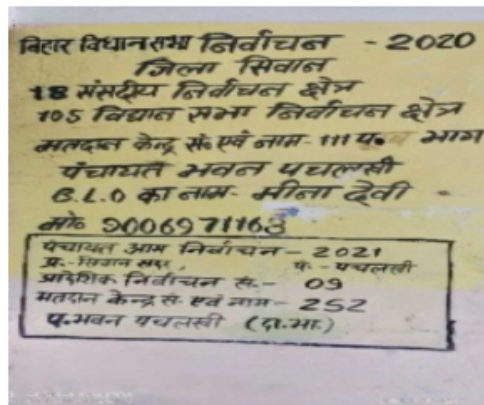 बिहार विधानसभा निर्वाचन - 2020
जिला सिवान
18 संसदीय निर्वाचन क्षेत्र
105 विधान सभा निर्वाचन क्षेत्र
मतदान केन्द्र सं. एवं नाम- 111 प. भाग
पंचायत भवन पचलखी
B.L.O का नाम- मीना देवी
मो० 9006971163
पंचायत आम निर्वाचन - 2021
प्र.- सिवान सदर, पं.- पचलखी
प्रादेशिक निर्वाचन सं.- 09
मतदान केन्द्र सं. एवं नाम- 252
प. भवन पचलखी (दा.भा.)